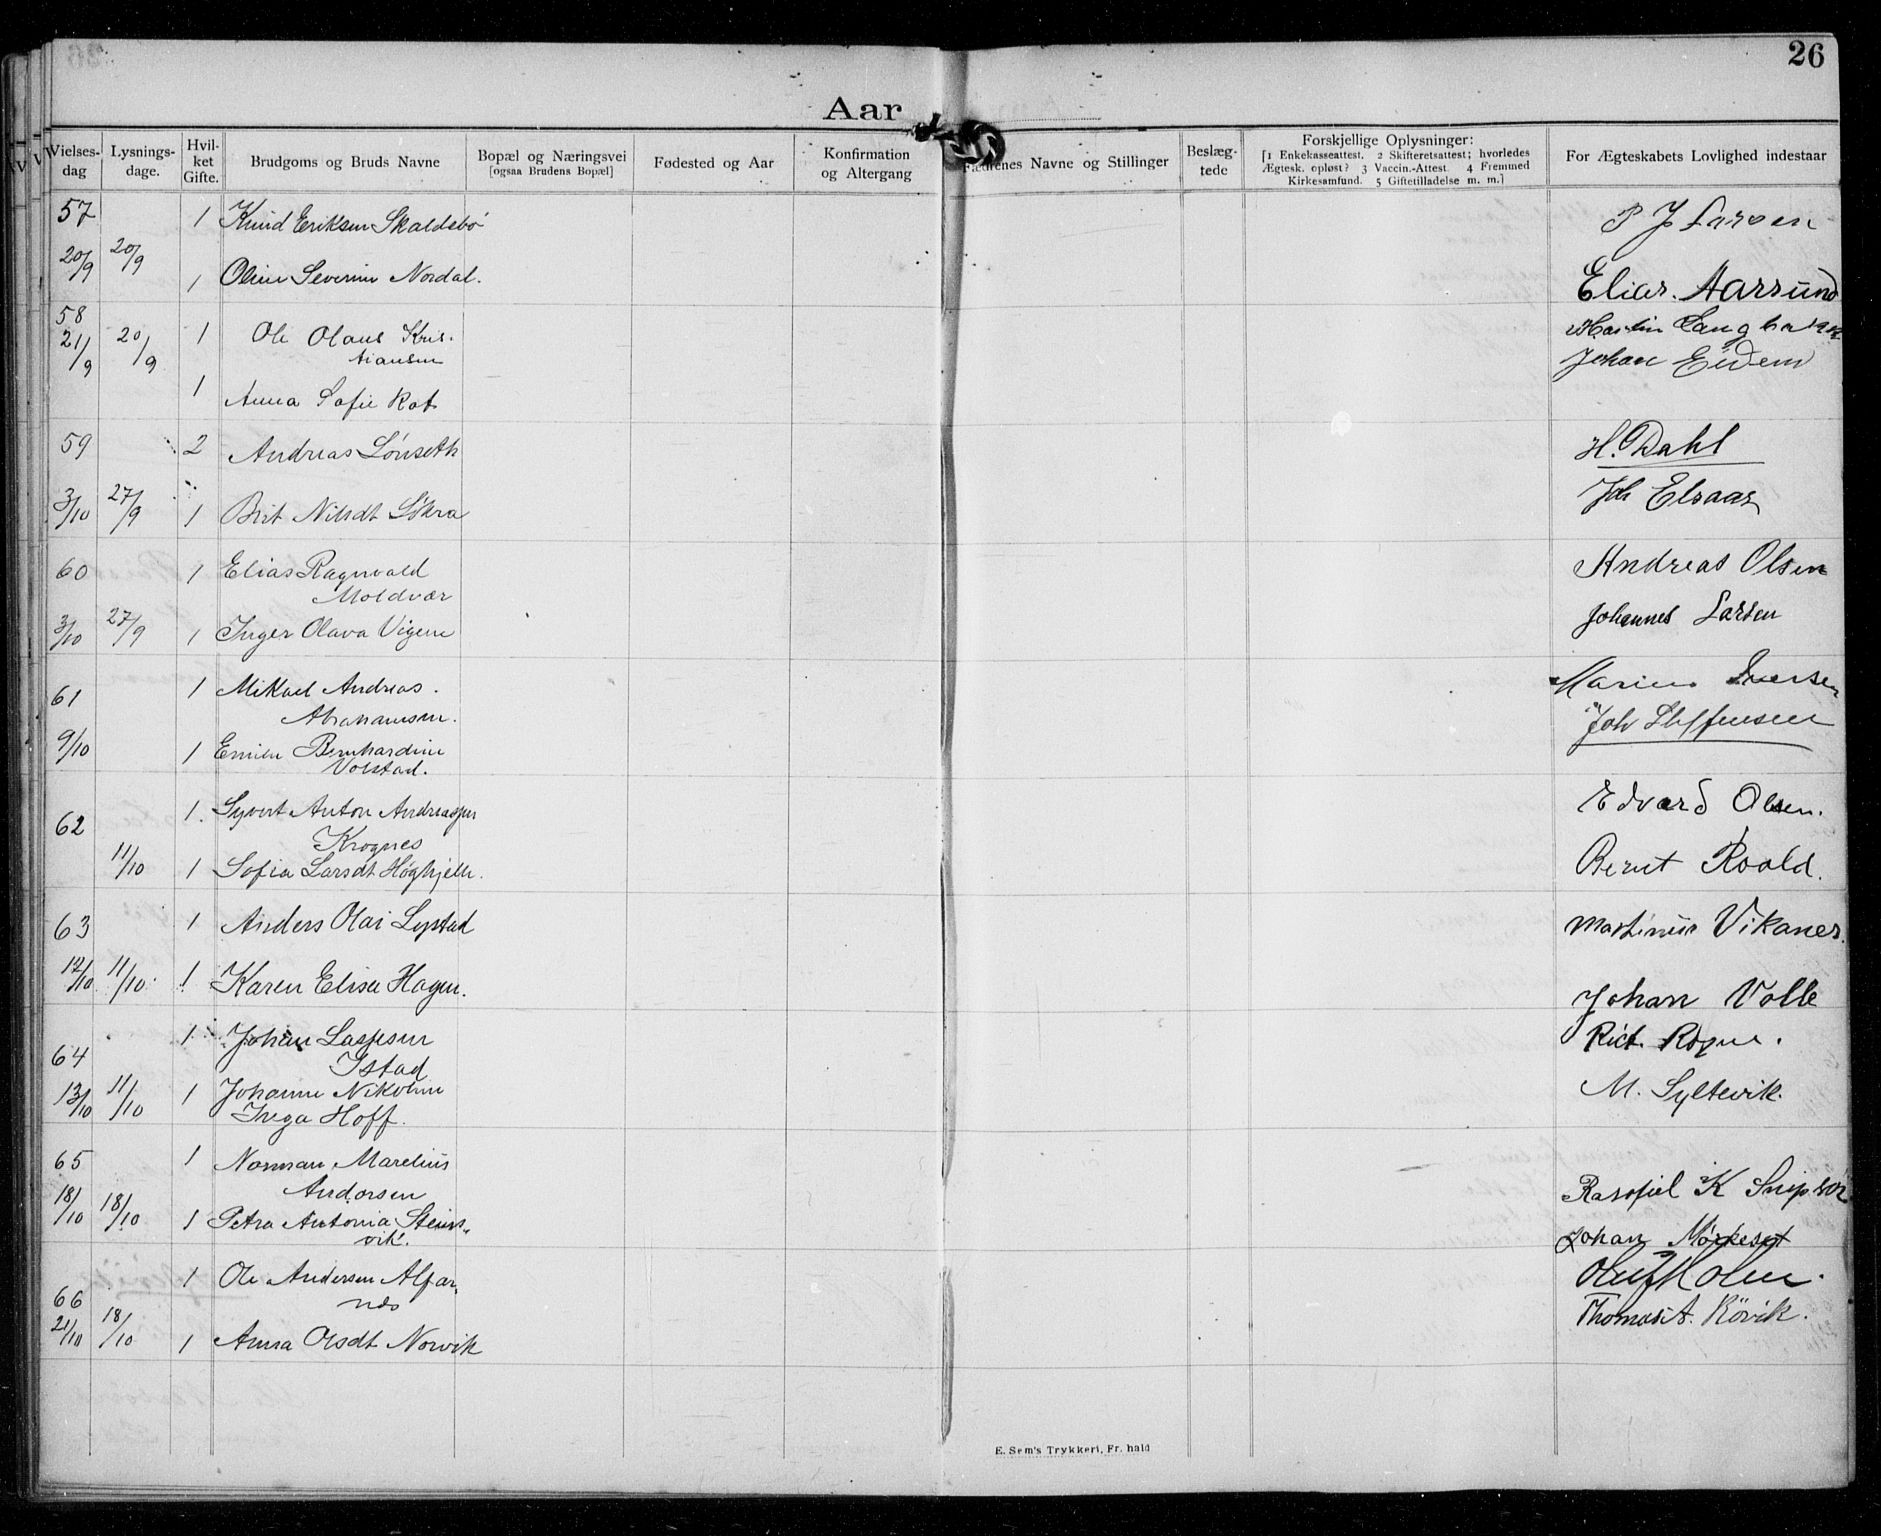 26
Aar
Vielses-dag Lysnings-dage. Hvil-ket Gifte. Brudgoms og Bruds Navne Bopæl og Næringsvei [ogsaa Brudens Bopæl] Fødested og Aar Konfirmation og Altergang Fædrenes Navne og Stillinger Beslæg-tede Forskjellige Oplysninger: [1 Enkekasseattest. 2 Skifteretsattest; hvorledes Ægtesk. opløst? 3 Vaccin.-Attest. 4 Fremmed Kirkesamfund. 5 Giftetilladelse m. m.] For Ægteskabets Lovlighed indestaar
57 1 Knud Eriksen Skaldsbö P J Larsen
20/9 20/9 1 Oline Severine Nordal. Elias. Aarsund
58
21/9 20/9 1 Ole Olaus Kris- Martin Langbakk
tiansen Johan Eidem
1 Anna Sofie Rot
59 2 Andreas Lönseth H. Dahl
3/10 27/9 1 Brit Nilsdt Lökra Joh Elsaas
60 1 Elias Ragnvald Andreas Olsen
Moldvær
3/10 27/9 1 Inger Olava Vigene Johannes Larsen
61 1 Mikael Andreas. Marius Iversen
Abrahamsen. Joh Steffensen
9/10 1 Emilie Bernhardine
Volstad.
62 1. Syvert Anton Andreassen Edvard Olsen.
Krognes
11/10 1 Sofia Larsdt Høghjelle. Bernt Roald.
63 1 Anders Olai Lystad Martinus Vikanes.
12/10 11/10 1 Karen Elise Hagen. Johan Volle
64 1 Johan Lassesen Rict. Rogne.
Istad
13/10 11/10 1 Johanne Nikoline M. Syltevik.
Inga Hoff.
65 1 Norman Marelius
Andorsen Rasofiel K Snipsör
18/10 18/10 1 Petra Antonia Steins-
vik. Johan Mørkeset
66 1 Ole Andersen Alfar- Oluf Holm.
nes
21/10 18/10 1 Anna Olsdt Norvik Thomas A. Rövik.
E. Sem's Trykkeri, Fr. hald